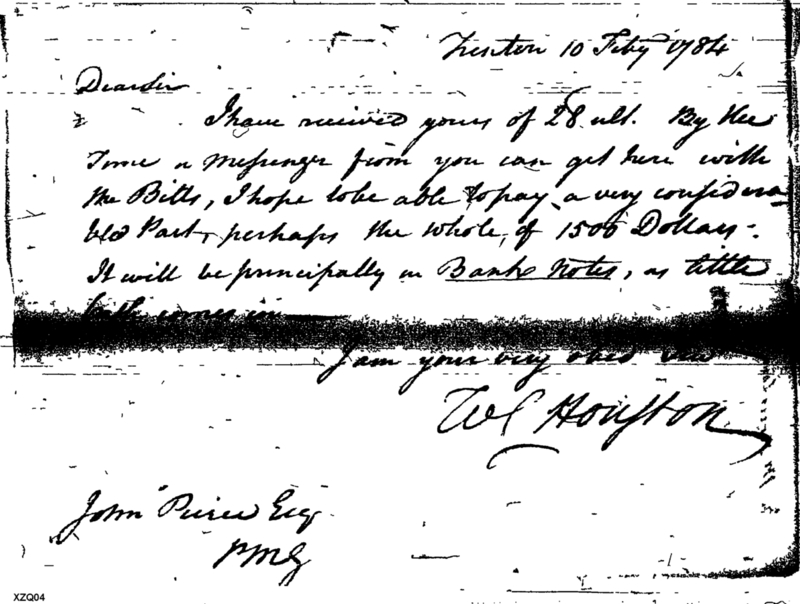 Trenton 10 Feby 1784
Dear Sir
I have received yours of 28 ult. By the
Time a Messenger from you can get here with
the Bills, I hope to be able to pay a very considera
ble Part, perhaps the whole, of 1500 Dollars.
It will be principally in Bank Notes, as little
Cash comes in
I am your very obed
Wl Houston
John Pierce Esq
PMG
XZQ04